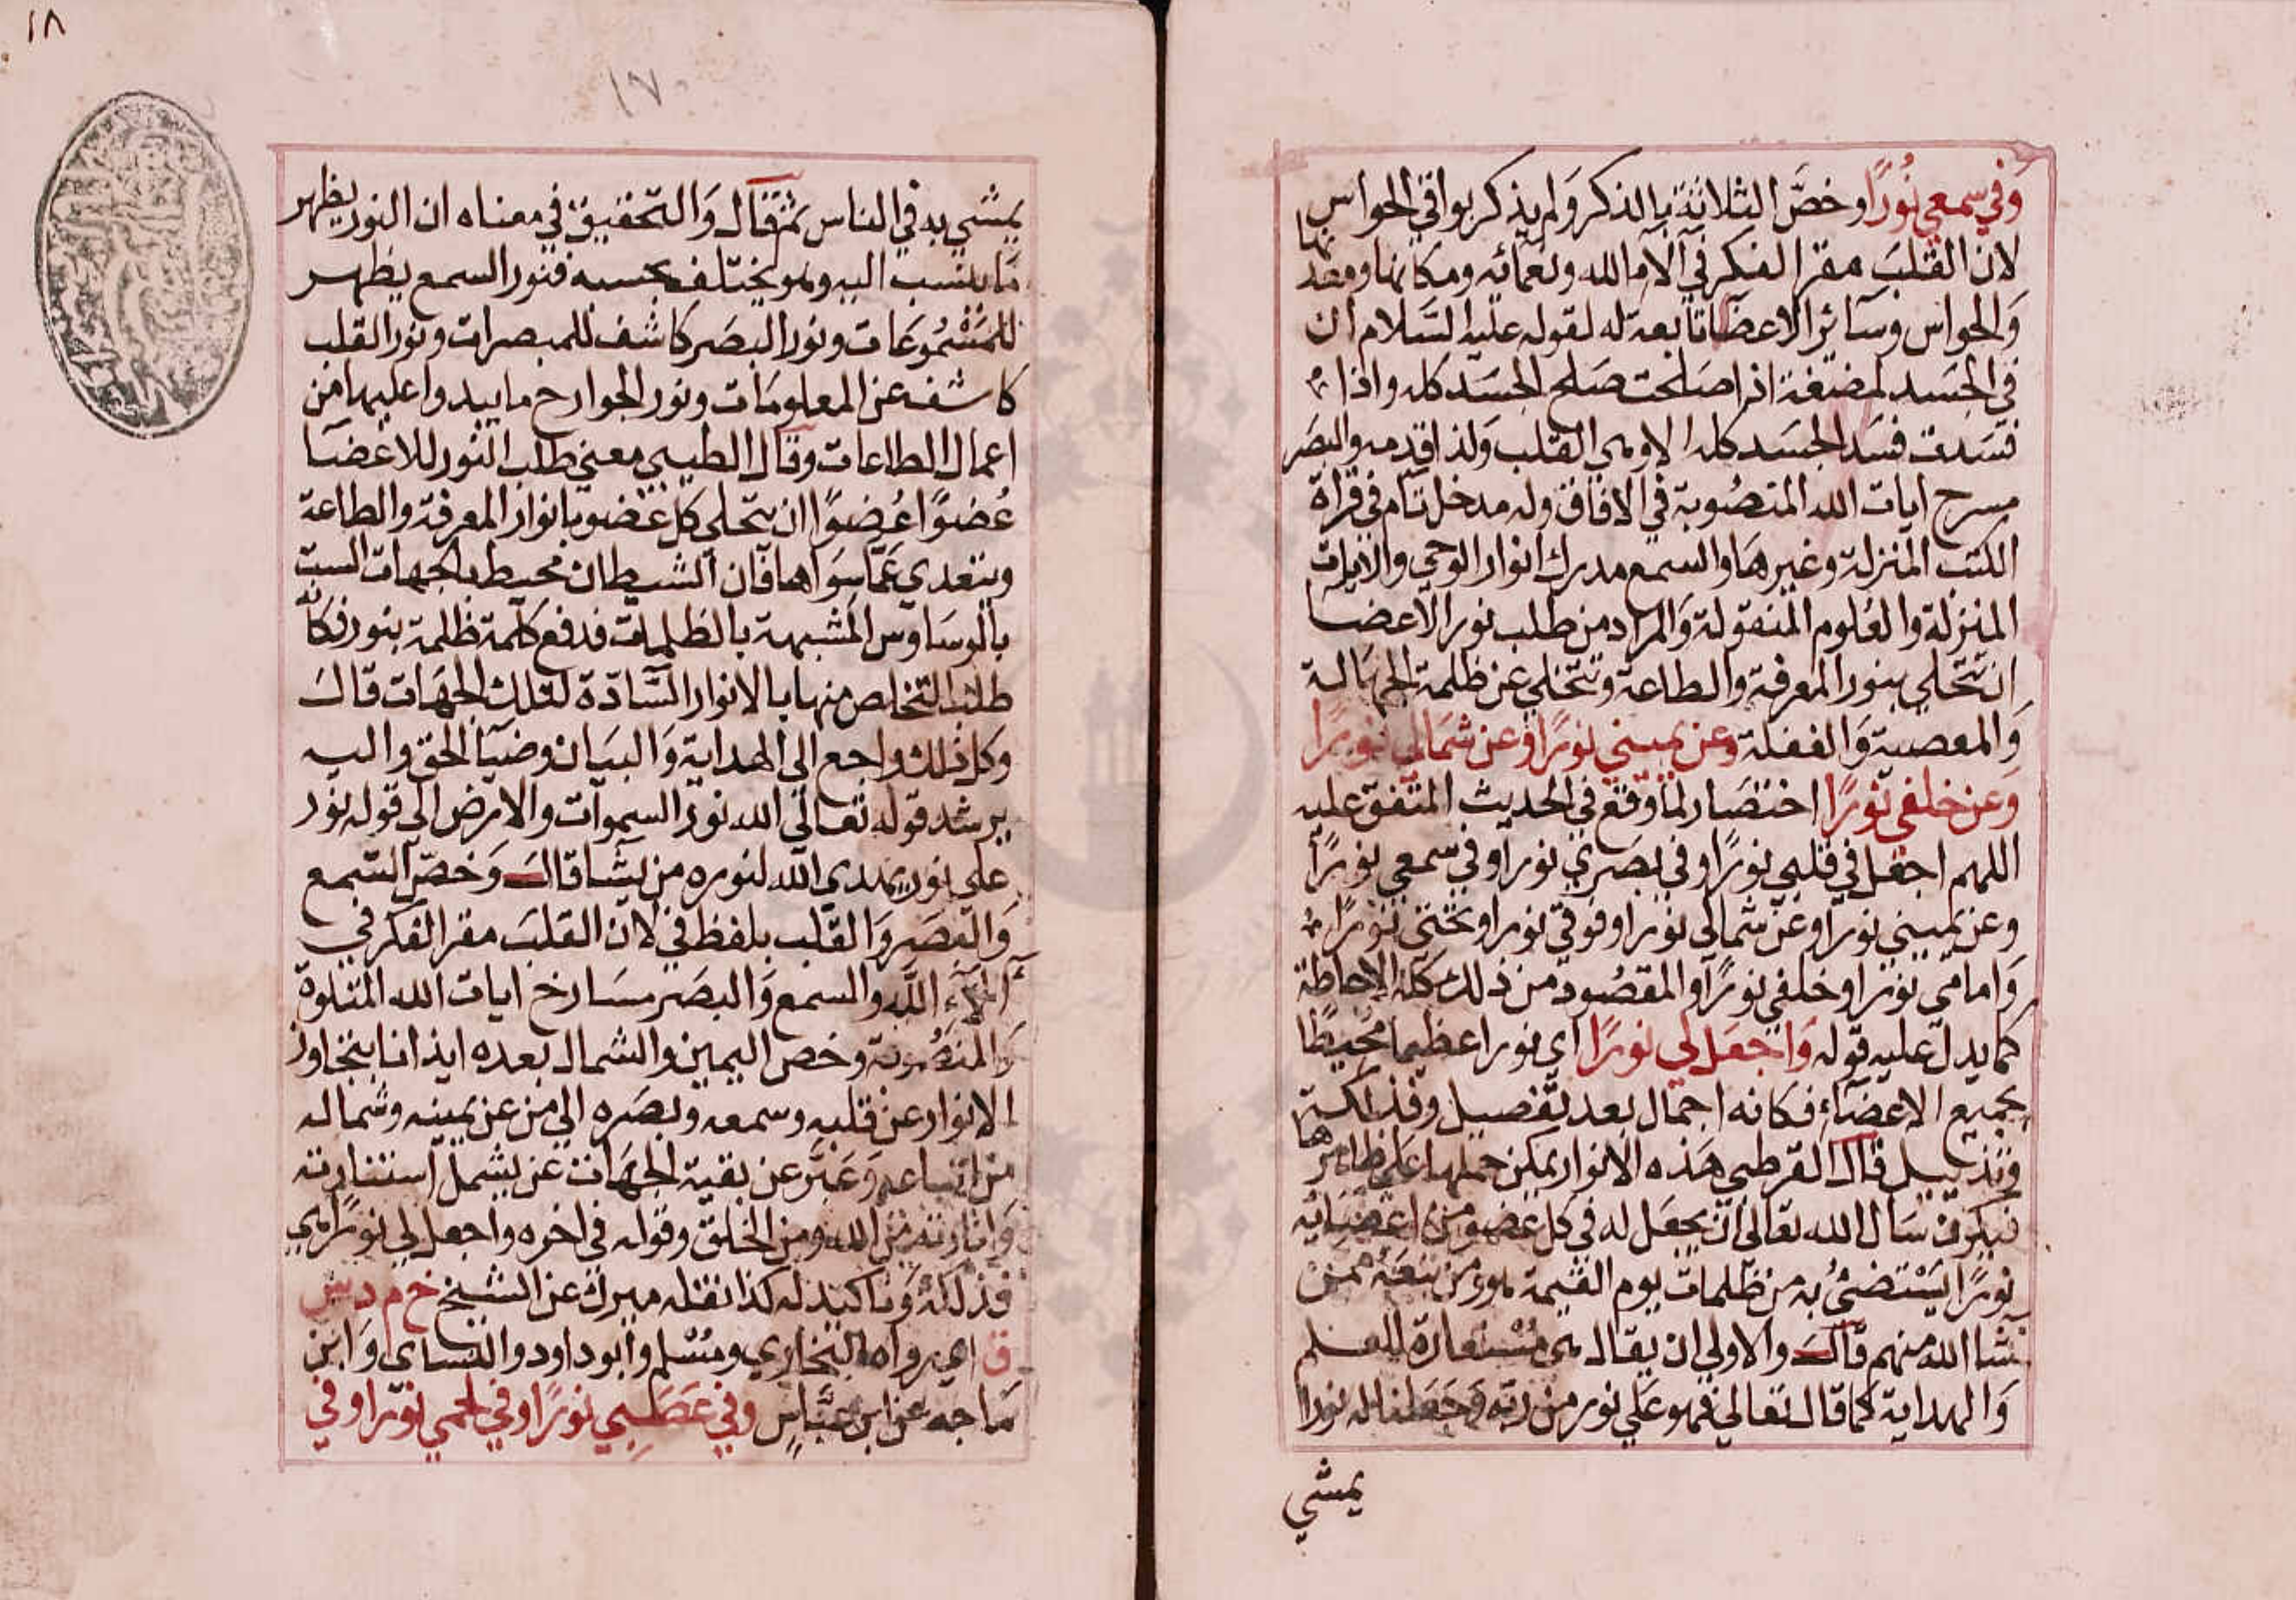 وَفي سمعي نُورًا وخصَّ الثلاثة بالذكر وَلم يذكر بواقي الحواس
لان القلبَ مقر الفكر في آلاء الله ونعمائه ومكانها ومعدنها
وَالحواس وسائر الاعضا تابعة له لقوله عليه السَّلام ان
في الجَسد لمضغة اذا صَلحت صَلح الجسَد كله واذا
فسَدت فسَد الجسَد كله الا وهي القلب وَلذا قدمه والبصَر
مسرح ايات الله المنصُوبة في الافاق وله مدخل تام في قراة
الكتب المنزلة وغيرهَا والسمع مدرك انوار الوحي والايات
المنزلة والعُلوم المنقولة وَالمراد من طلب نور الاعضا
ان تتحلي بنور المعرفة والطاعة وتتخلي عن ظلمة الجهالة
وَالمعصية وَالغفلة وعن يميني نورًا وعن شمَالي نورًا
وَعن خلفي نورًا اختصَار لما وقع في الحديث المتفق عليه
اللهم اجعل في قلبي نورًا وفي بصَري نورا وفي سمعي نورًا
وعن يميني نورا وعن شمالي نورا وفوقي نورا وتحتي نورًا
وَامامي نورا وخلفي نورًا والمقصُود من ذلك كله الاحاطة
كما يدل عليه قوله وَاجعَل لي نورًا اي نورا عظيما محيطًا
بجميع الاعضاء فكانه اجمال بعد تفصيل وفذلكة
وتذييل قال القرطبي هَذه الانوار يمكن حملها علي ظاهرها
فيكون سَال الله تعالي ان يجعَل له في كل عضو من اعضَائه
نورًا يَسْتضئُ به من ظلمات يوم القيمة هو ومن تبعَهُ ممن
شا الله منهم قال والاولي ان يقال هي مُسْتعارة للعلم
وَالهداية كما قال تعالي فهو عَلي نور من ربه وَجَعلنا له نورا
يمشي
١٨
١٧
يمشي به في الناس ثم قال وَالتحقيق في معناه ان النور يظهر
مَا ينسب اليه وهو يختلف بحسبه فنور السمع يظهر
للمَسْمُوعَات ونور البصَر كاشف للمبصرات ونور القلب
كاشف عن المعلومَات ونور الجوارح ما يبدوا عليها من
اعمال الطاعات وقال الطيبي معني طلب النور للاعضَا
عُضوًا عُضوًا ان يتحلي كل عضو بانوار المعرفة والطاعة
ويتعدي عَمّا سِوَاهما فان الشيطان محيط بالجهات الست
بالوسَاوس المشبهة بالظلمات فدفع كل ظلمة بنور فكانه
طلب التخلص منها بالانوار السَّادّة لتلك الجهَات قال
وكل ذلك راجع الي الهداية وَالبيَان وضيَا الحق واليه
يرشد قوله تعالي الله نور السموات والارض الي قوله نور
علي نور يهدي الله لنوره من يشا قال وَخصّ السّمع
وَالبصَر وَالقلب بلفظ في لان القلبَ مقر الفكر في
آلاء اللّه والسمع وَالبصَر مسَارح ايات الله المتلوة
وَالمنصُوبة وخص اليمين والشمال بعده ايذانا بتجاوز
الانوار عن قلبه وسمعه وبصَره الي من عن يمينه وشماله
من اتباعه وَعَبَّر عن بقية الجهَات عن يشمل استنارته
وَانارته من الله ومن الخلق وقوله في اخره واجعل لي نورًا هي
فذلكة وَتاكيد له كذا نقله ميرك عن الشيخ خ م د س
ق اي رواه البخاري ومُسْلم وابو داود والنساي وَابن
مَاجه عن ابن عَبَّاسٍ وفي عَصَبِي نورًا وفي لحمي نورا وفي